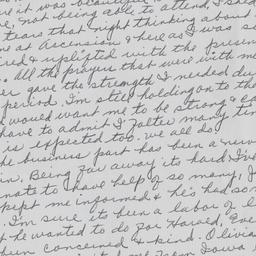 ure it was beautiful
e, not being able to attend, I shed
tears that night thinking about
me at Ascension & here as I was s
red & uplifted with the presen
. All the prayers that were with me
er gave the strength I needed du
period. I'm still holding on to the
would want me to be strong & ca
have to admit I falter many tim
is expected too. we all do
the business part has been a nerv
in. Being far away its hard I've
nate to have help of so many. J
kept me informed & he's had som
. I'm sure its been a labor of l
t he wanted to do for Harold, Eve
been concerned & kind. Olivia
from Iowa